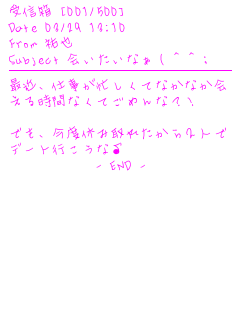 受信箱 [001/500]
Date 09/29 19:10
From 拓也
Subject 会いたいなぁ(^^;
最近、仕事が忙しくてなかなか会
える時間なくてごめんな?!
でも、今度休み取れたから2人で
デート行こうな♪
- END -